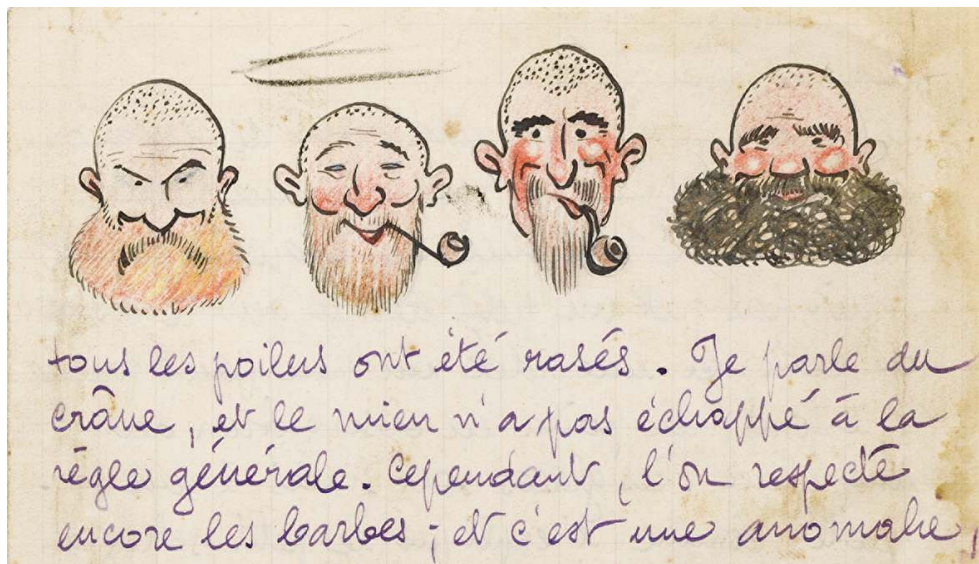 tous les poilus ont été rasés. Je parle du
crâne, et le mien n'a pas échappé à la
règle générale. Cependant, l'on respecte
encore les barbes ; et c'est une anomalie,